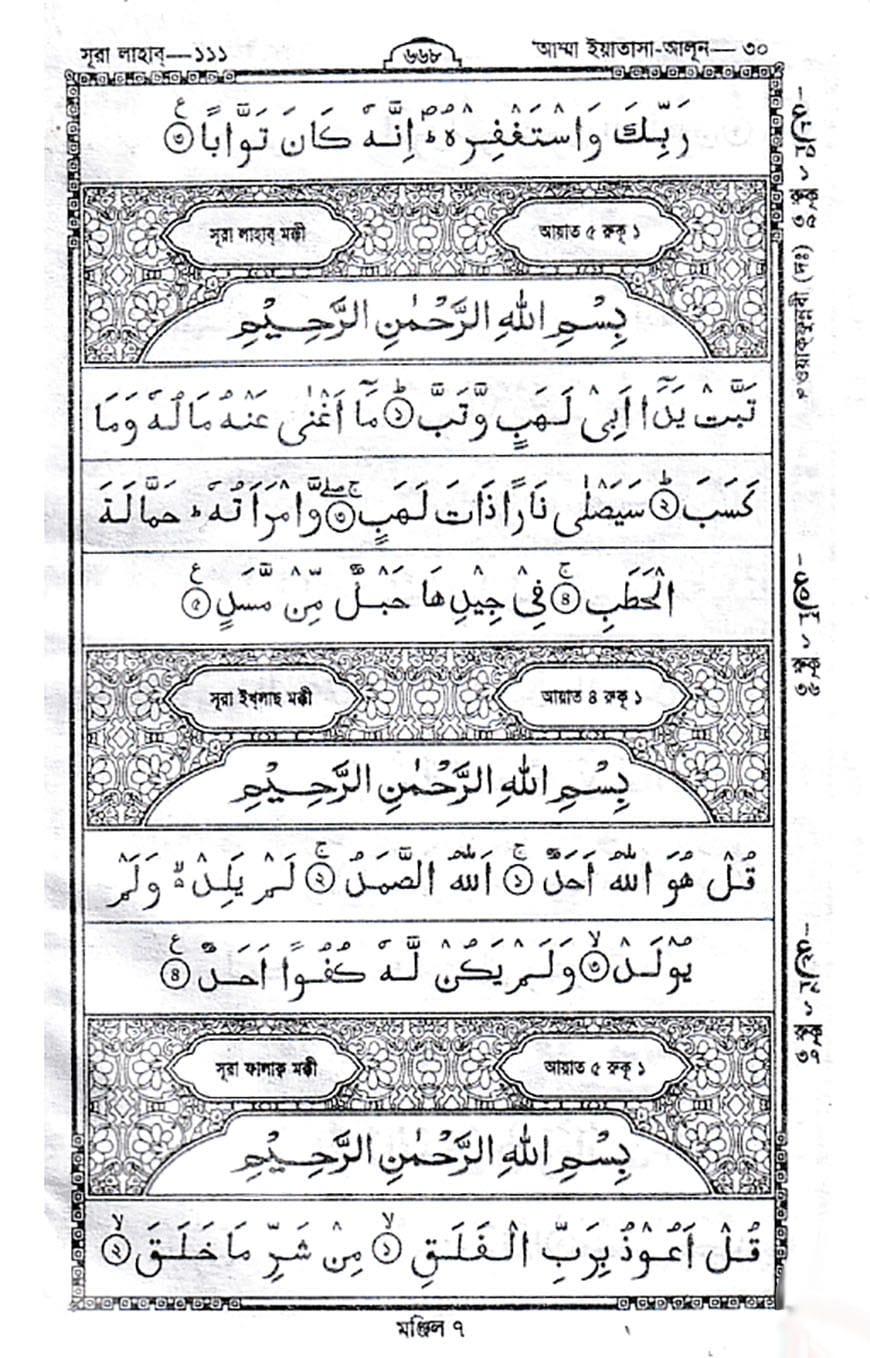 সূরা লাহাব্—১১১
৬৬৮
আম্মা ইয়াতাসা-আলূন— ৩০
رَبِّكَ وَاسْتَغْفِرْهُ ؕ اِنَّهٗ كَانَ تَوَّابًا ۳
সূরা লাহাব্ মক্কী
আয়াত ৫ রুকূ ১
بِسْمِ اللّٰهِ الرَّحْمٰنِ الرَّحِيْمِ
تَبَّتْ يَدَاۤ اَبِىْ لَهَبٍ وَّتَبَّ ؕ ১ مَاۤ اَغْنٰى عَنْهُ مَالُهٗ وَمَا
كَسَبَ ؕ ২ سَيَصْلٰى نَارًا ذَاتَ لَهَبٍ ۚۖ ৩ وَّامْرَاَتُهٗ ؕ حَمَّالَةَ
الْحَطَبِ ۚ ৪ فِىْ جِيْدِهَا حَبْلٌ مِّنْ مَّسَدٍ ৫
সূরা ইখ্‌লাছ মক্কী
আয়াত ৪ রুকূ ১
بِسْمِ اللّٰهِ الرَّحْمٰنِ الرَّحِيْمِ
قُلْ هُوَ اللّٰهُ اَحَدٌ ۚ ১ اَللّٰهُ الصَّمَدُ ۚ ২ لَمْ يَلِدْ ۙ وَلَمْ
يُوْلَدْ ۙ ৩ وَلَمْ يَكُنْ لَّهٗ كُفُوًا اَحَدٌ ৪
সূরা ফালাক্ব মক্কী
আয়াত ৫ রুকূ ১
بِسْمِ اللّٰهِ الرَّحْمٰنِ الرَّحِيْمِ
قُلْ اَعُوْذُ بِرَبِّ الْفَلَقِ ۙ ১ مِنْ شَرِّ مَا خَلَقَ ۙ ২
মঞ্জিল ৭